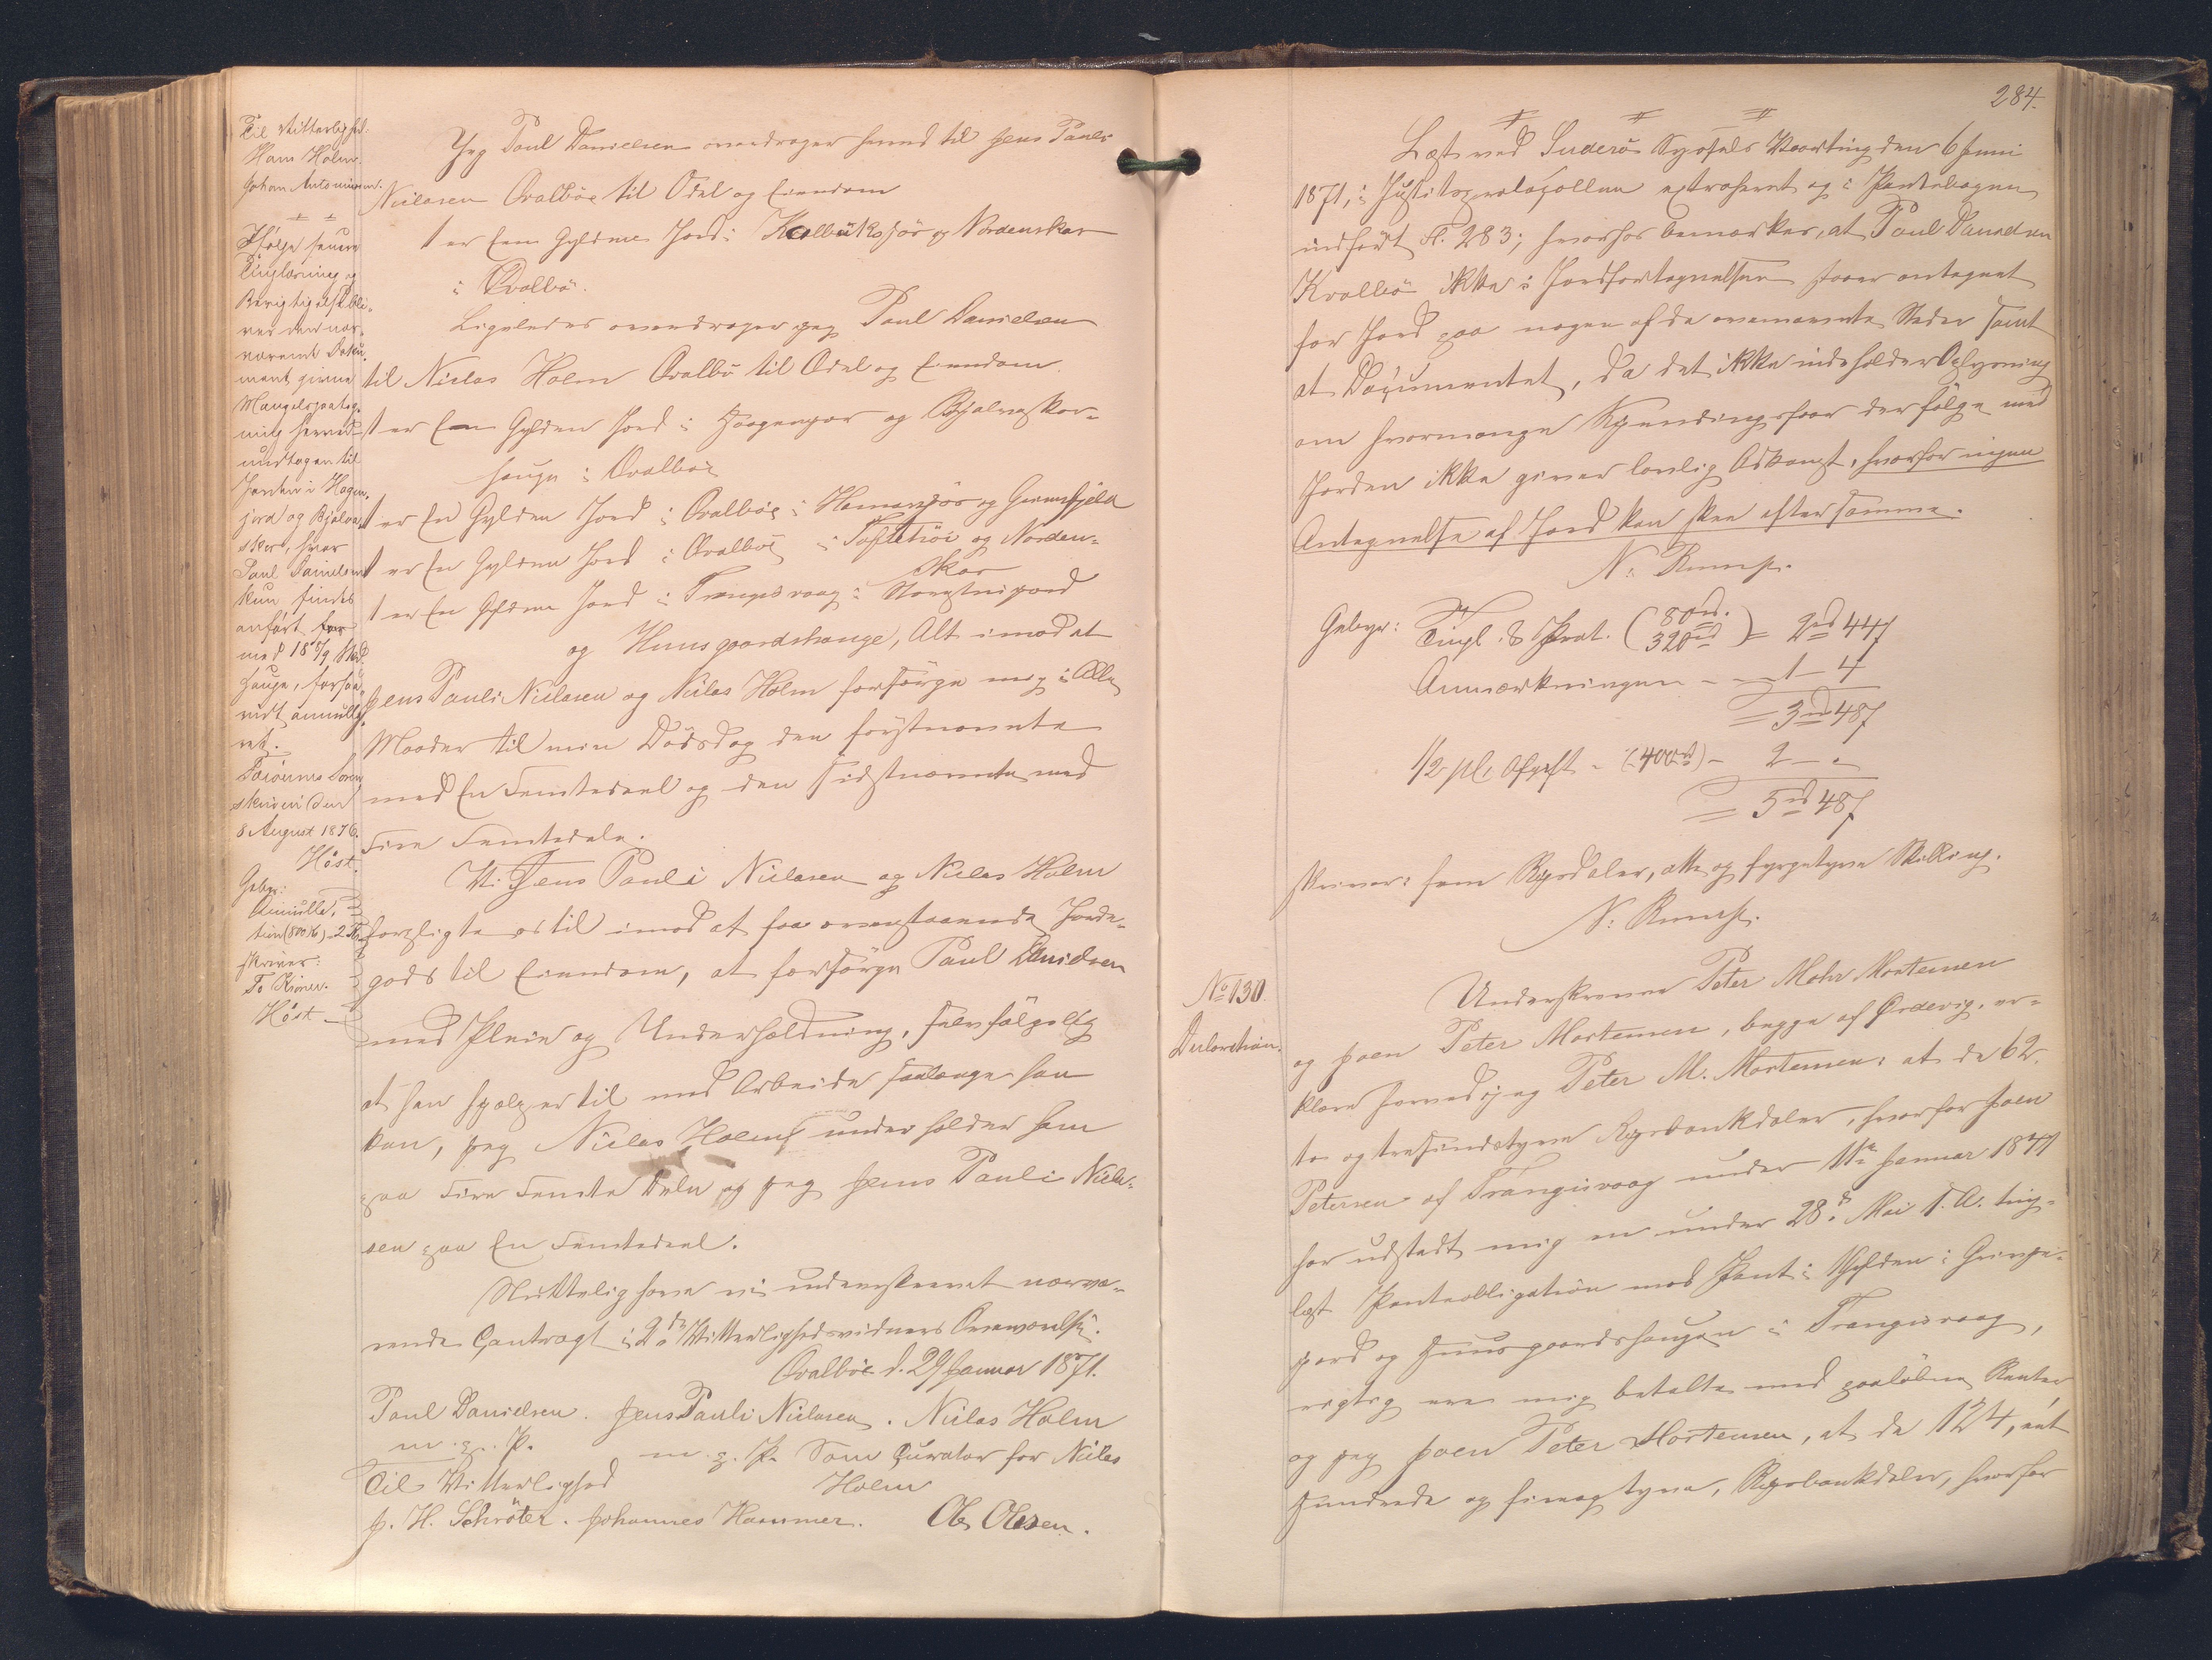 Til Vitterlighed.
Hans Holm.
Johan Antonius
Ifölge senere
Tinglæsning og
Berigtigelse bli-
ver den nær-
værende Doku-
ment givne
Mangelspateg-
ning herved
undtagen til
Jorden i Hagen-
jord og Bjelva-
skor, hvor
Paul Danielsen
kun findes
anført
med 15 Skd
Hauge, forsaa-
vidt annulle-
ret.
Færøernes Soren-
skriveri den
8 August 1876.
Höst.
Gebyr:
Annulla-
tion (800 K) - 2 Kr
skriver:
To Kroner.
Höst
Jeg Poul Danielsen overdrager herved til Jens Pauli
Nielasen Qvalböe til Odel og Eiendom
1 er Een Gylden Jord i og Nordenskor
i Qvalbö.
Ligeledes overdrager jeg Poul Danielsen
til Niclas Holm Qvalbö til Odel og Eiendom
1 er Een Gylden Jord i og Bjelvaskor-
hauge i Qvalböe
1 er En Gylden Jord i Qvalböe i og
1 er En Gylden Jord i Qvalböe i og Norden-
skor
1 er En Gylden Jord i Trangisvaag i
og Huusgaardshauge, Alt imod at
Jens Pauli Nielasen og Niclas Holm forsörge mig i Alle
Maader til min Dödsdag den förstnævnte
med En Femtedeel og den Sidstnævnte med
Fire Femtedele.
Vi Jens Pauli Nielasen og Niclas Holm
forpligte os til imod at faa ovenstaaende Jorde-
gods til Eiendom, at forsörge Paul Danielsen
med Pleie og Underholdning, selvfølgelig
at han hjælper til med Arbeide saalænge han
kan, jeg Niclas Holm underholder ham
paa Fire Femte Dele og jeg Jens Pauli Niela-
sen paa En Femtedeel.
Sluttelig have vi underskrevet nærvæ-
rende Contragt i 2de Vitterlighedsvidners Overværelse.
Qvalböe d. 29 Januar 1871.
Paul Danielsen. Jens Pauli Nielasen. Niclas Holm
m. p. P. m. p. P. Som Curator for Niclas
Til Vitterlighed Holm
J. H. Schröter. Johannes Hammer. Ole Olesen.
284.
Læst ved Suderö Syssels Vaarting den 6 Juni
1871, i Justitsprotocollen extraheret og i Pantebogen
indført Fl. 283; hvorhos bemærkes, at Poul Danielsen
Kvalbö ikke i Jordfortegnelsen staaer antegnet
for Jord paa nogen af de ovennævnte Steder samt
at Documentet, da det ikke indeholder Oplysning
om hvormange Skjendingsfaar der følge med
Jorden ikke giver lovlig Adkomst, hvorfor ingen
Antegnelse af Jord kan skee efter samme.
N. Rump.
Gebyr: Tingl. & Prot. (80rd. 320rd) = 2rd 44ß
Anmærkningen - - 1 - 4
= 3rd 48ß
1/2 pCt Afgift - (400rd) - 2 - "
= 5rd 48ß
skriver: fem Rigsdaler, otte og fyrgetyve Skilling.
N. Rump.
No 130.
Declaration.
Underskrevne Peter Mohr Mortensen
og Joen Peter Mortensen, begge af Ordevig, er-
klære herved jeg Peter M. Mortensen: at de 62
to og tresindstyve Rigsbankdaler, hvorfor Joen
Petersen af Trangisvaag under 11te Januar 1844
har udstedt mig en under 28de Mai s. A. ting-
læst Panteobligation mod Pant i 1 Gylden i
jord og Huusgaardshaugen i Trangisvaag,
rigtig ere mig betalte med paaløbne Renter
og jeg Joen Peter Mortensen, at de 124, eet
Hundrede og fireogtyve, Rigsbankdaler, hvorfor